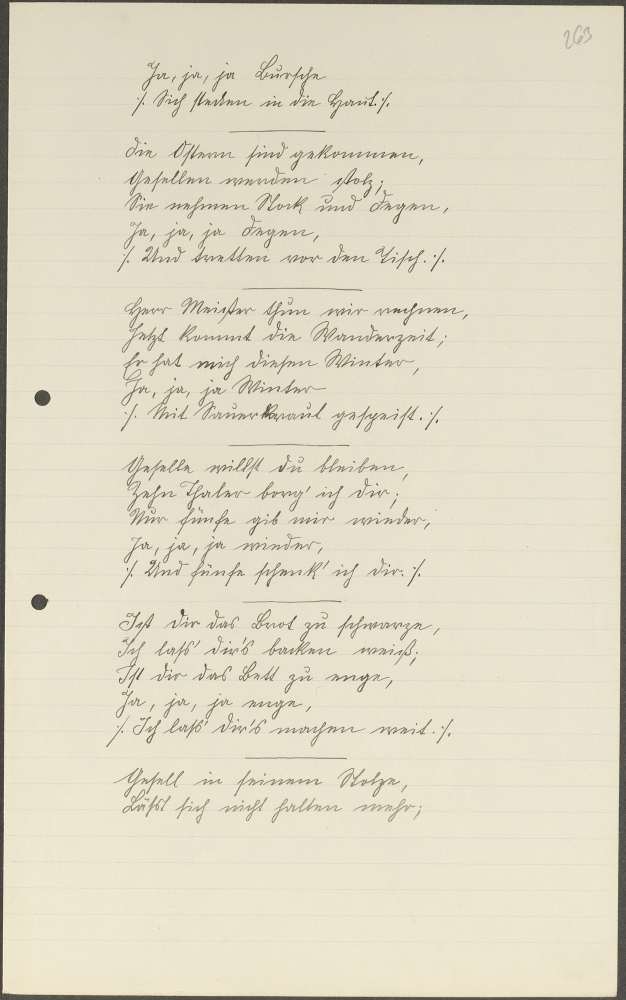 263
Ja, ja, ja Bursche
:/: Sich stecken in die Haut :/:
Die Ostern sind gekommen,
Gesellen werden stolz;
Sie nehmen Stock und Degen,
Ja, ja, ja Degen,
:/: Und tretten vor den Tisch. :/:
Herr Meister thun wir rechnen,
Jetzt kommt die Wanderzeit;
Er hat mich diesen Winter,
Ja, ja, ja Winter
:/: Mit Sauerkraut gespeist. :/:
Geselle willst du bleiben,
Zehn Thaler borg' ich dir;
Nur fünfe gib mir wieder,
Ja, ja, ja wieder,
:/: Und fünfe schenk' ich dir. :/:
Ist dir das Brot zu schwarze,
Ich lass' dir's backen weiß;
Ist dir das Bett zu enge,
Ja, ja, ja enge,
:/: Ich lass' dir's machen weit. :/:
Gesell in seinem Stolze,
Lässt sich nicht halten mehr;